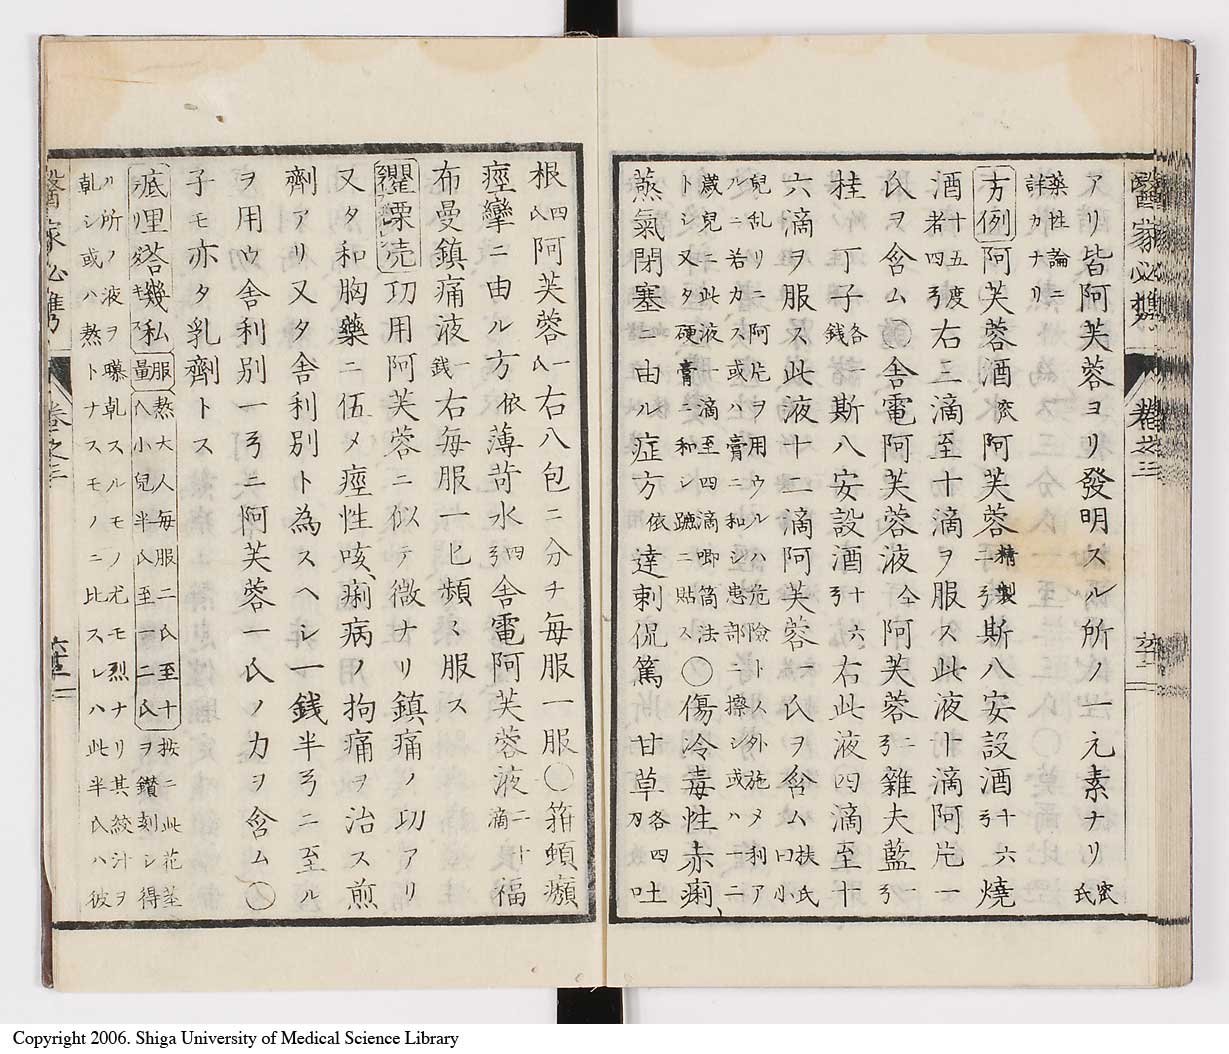 醫家必携 卷之三
アリ皆阿芙蓉ヨリ發明スル所ノ一元素ナリ 密氏
藥性論ニ詳カナリ
方例 阿芙蓉酒 阿芙蓉 精製 二弓 斯八安設酒 十六弓 燒
酒 十五度者四弓 右三滴至十滴ヲ服ス此液十滴阿片一
氏ヲ含ム〇舍電阿芙蓉液 仝 阿芙蓉 二弓 雜夫藍 一弓
桂 丁子 各一錢 斯八安設酒 十六弓 右此液四滴至十
六滴ヲ服ス此液十二滴阿芙蓉一氏ヲ含ム 扶氏曰小
兒乱リニ阿片ヲ用ウルハ危險トノ外施メ利ア
ルニ若カス或ハ膏ニ和シ患部ニ擦シ或ハ十二
歲兒ニ此液一滴至四滴喞筒法〇傷冷毒性赤痢、
トシ又タ硬膏ニ和シ蹠ニ貼ス
蒸氣閉塞ニ由ル症方 依 達刺侃篤 甘草 各四刀 吐
根 四氏 阿芙蓉 一氏 右八包ニ分チ每服一服〇箝頓癪
痙攣ニ由ル方 依 薄苛水 四弓 舍電阿芙蓉液 二十滴 福
布曼鎮痛液 一錢 右每服一匕頻ス服ス
罌粟売 功用阿芙蓉ニ似テ微ナリ鎮痛ノ功アリ
又タ和胸藥ニ伍メ痙性咳、痢病ノ拘痛ヲ治ス煎
劑アリ又タ舍利別ト為スヘシ一銭半弓ニ至ル
ヲ用ウ舍利別一弓ニ阿芙蓉一氏ノ力ヲ含ム〇
子モ亦タ乳劑トス
底里塔幾私 服量 熬大人每服二氏至十
八小兒半氏至一二氏 按ニ此花莖
ヲ鑽刻シ得
ル所ノ液ヲ曝乾スルモノ尤モ烈ナリ其絞汁ヲ
乹シ或ハ熬トナスモノニ比スレハ此半氏ハ彼
醫家必携 卷之三
Copyright 2006. Shiga University of Medical Science Library